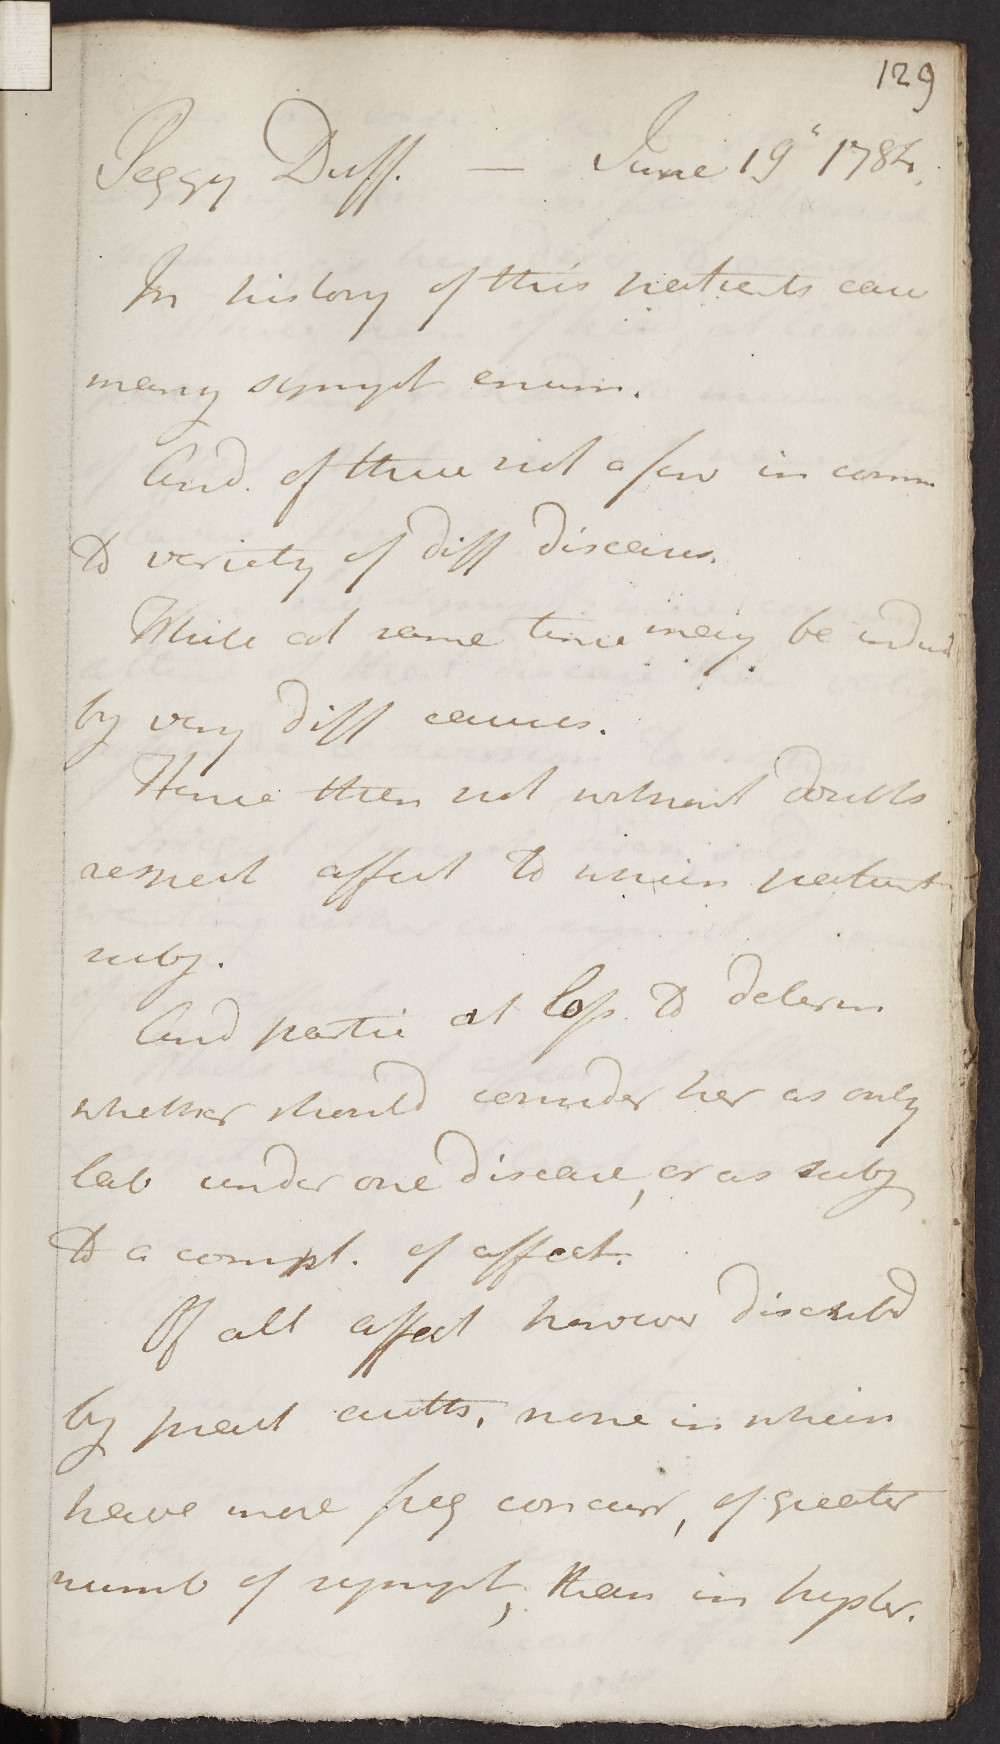 129
Peggy Duff. — June 19" 1784.
In history of this patients case
many sympt enum.
And. of these not a few in comm.
to variety of diff diseases.
While at same time may be induc
by very diff causes.
Hence then not without doubts
respect affect to which patient
subj.
And partic at loss to determ
whether should consider her as only
lab under one disease, or as subj
to a compl. of affect.
Of all affect however describd
by pract auth. none in which
have more freq concurr, of greater
numb of sympt, than in hyster.